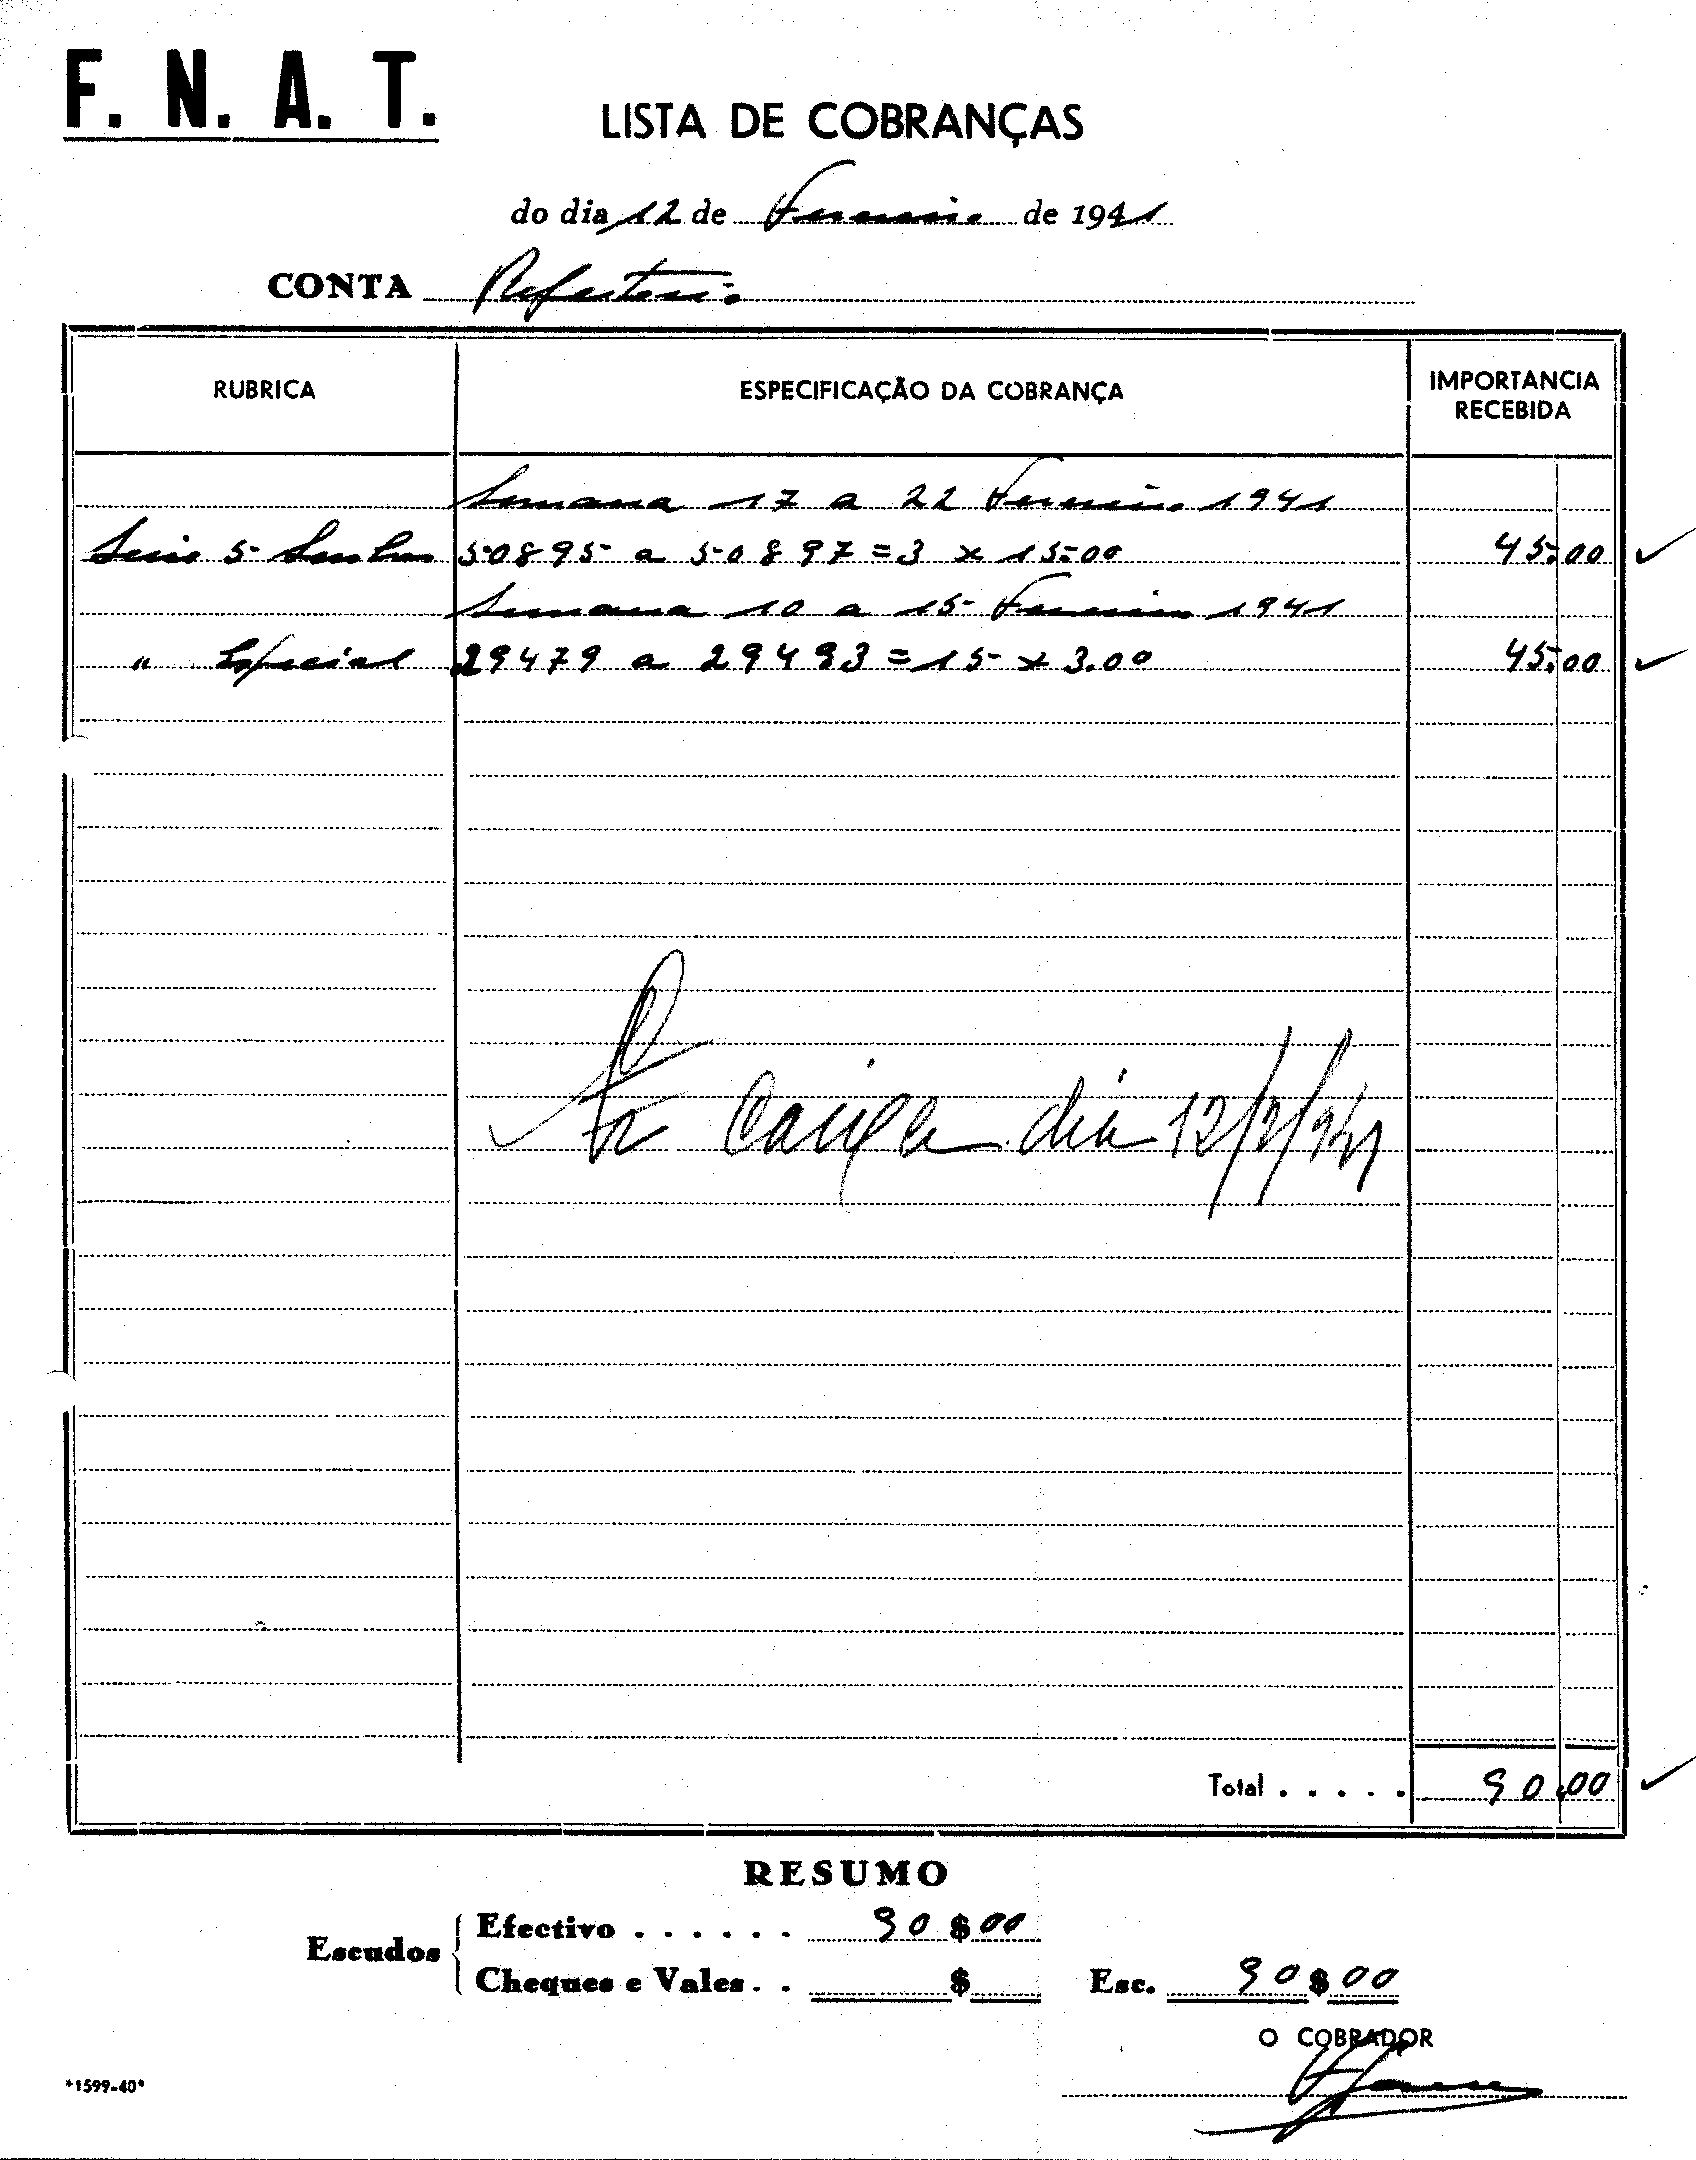 F. N. A. T.
LISTA DE COBRANÇAS
do dia 12 de Fevereiro de 1941
CONTA Refeitorio
RUBRICA ESPECIFICAÇÃO DA COBRANÇA IMPORTANCIA RECEBIDA
Semana 17 a 22 Fevereiro 1941
Serie 5 Senhas 50895 a 50897 = 3 x 15.00 45.00
Semana 10 a 15 Fevereiro 1941
" Especial 29479 a 29493 = 15 x 3.00 45.00
Caixa dia 12/2/941
Total . . . . . 90.00
RESUMO
Escudos
Efectivo . . . . . . 90 $ 00
Cheques e Vales . . $ Esc. 90 $ 00
O COBRADOR
*1599-40*